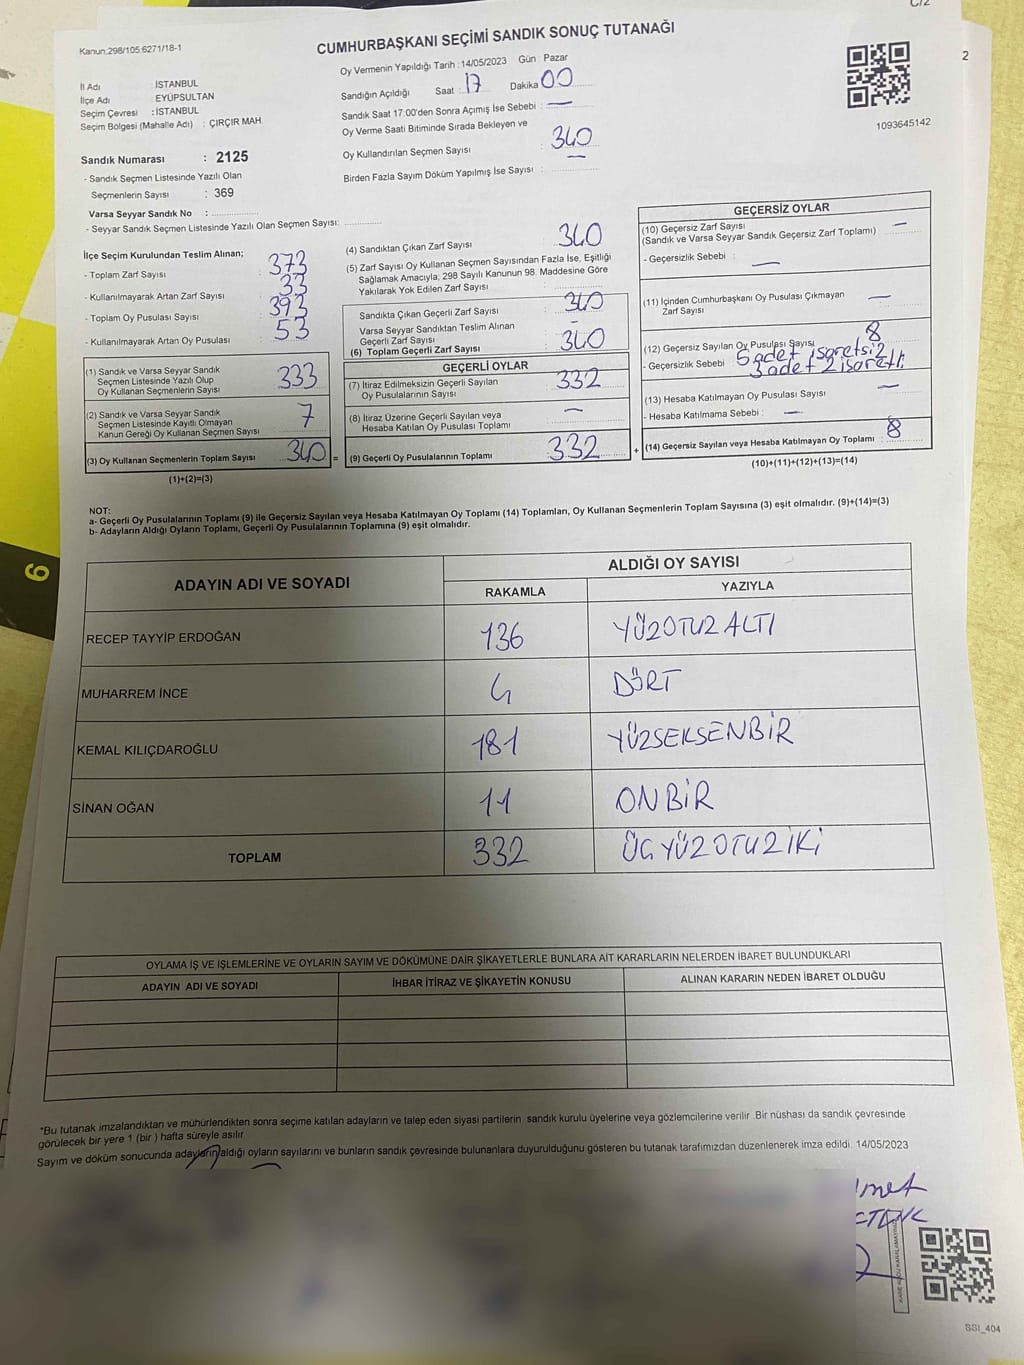 C/2
Kanun:298/105:6271/18-1
CUMHURBAŞKANI SEÇİMİ SANDIK SONUÇ TUTANAĞI
2
Oy Vermenin Yapıldığı Tarih : 14/05/2023 Gün : Pazar
İl Adı : İSTANBUL
İlçe Adı : EYÜPSULTAN
Seçim Çevresi : İSTANBUL
Seçim Bölgesi (Mahalle Adı) : ÇIRÇIR MAH.
Sandığın Açıldığı Saat : 17 Dakika 00
Sandık Saat 17:00'den Sonra Açımış İse Sebebi : —
Oy Verme Saati Bitiminde Sırada Bekleyen ve
Oy Kullandırılan Seçmen Sayısı : 340
Birden Fazla Sayım Döküm Yapılmış İse Sayısı : —
1093645142
Sandık Numarası : 2125
- Sandık Seçmen Listesinde Yazılı Olan
Seçmenlerin Sayısı : 369
Varsa Seyyar Sandık No :
- Seyyar Sandık Seçmen Listesinde Yazılı Olan Seçmen Sayısı:
İlçe Seçim Kurulundan Teslim Alınan;
- Toplam Zarf Sayısı : 373
- Kullanılmayarak Artan Zarf Sayısı : 33
- Toplam Oy Pusulası Sayısı : 393
- Kullanılmayarak Artan Oy Pusulası : 53
(1) Sandık ve Varsa Seyyar Sandık
Seçmen Listesinde Yazılı Olup
Oy Kullanan Seçmenlerin Sayısı 333
(2) Sandık ve Varsa Seyyar Sandık
Seçmen Listesinde Kayıtlı Olmayan
Kanun Gereği Oy Kullanan Seçmen Sayısı 7
(3) Oy Kullanan Seçmenlerin Toplam Sayısı 340 =
(1)+(2)=(3)
(4) Sandıktan Çıkan Zarf Sayısı : 340
(5) Zarf Sayısı Oy Kullanan Seçmen Sayısından Fazla İse, Eşitliği
Sağlamak Amacıyla, 298 Sayılı Kanunun 98. Maddesine Göre
Yakılarak Yok Edilen Zarf Sayısı :
Sandıkta Çıkan Geçerli Zarf Sayısı : 340
Varsa Seyyar Sandıktan Teslim Alınan
Geçerli Zarf Sayısı : –
(6) Toplam Geçerli Zarf Sayısı : 340
GEÇERLİ OYLAR
(7) İtiraz Edilmeksizin Geçerli Sayılan
Oy Pusulasının Sayısı : 332
(8) İtiraz Üzerine Geçerli Sayılan veya
Hesaba Katılan Oy Pusulası Toplamı : —
(9) Geçerli Oy Pusulalarının Toplamı : 332 +
GEÇERSİZ OYLAR
(10) Geçersiz Zarf Sayısı
(Sandık ve Varsa Seyyar Sandık Geçersiz Zarf Toplamı) : —
- Geçersizlik Sebebi : —
(11) İçinden Cumhurbaşkanı Oy Pusulası Çıkmayan
Zarf Sayısı : —
(12) Geçersiz Sayılan Oy Pusulası Sayısı : 8
- Geçersizlik Sebebi 5 adet işaretsiz
3 adet 2 işaretli
(13) Hesaba Katılmayan Oy Pusulası Sayısı : —
- Hesaba Katılmama Sebebi : —
(14) Geçersiz Sayılan veya Hesaba Katılmayan Oy Toplamı : 8
(10)+(11)+(12)+(13)=(14)
NOT:
a- Geçerli Oy Pusulalarının Toplamı (9) ile Geçersiz Sayılan veya Hesaba Katılmayan Oy Toplamı (14) Toplamları, Oy Kullanan Seçmenlerin Toplam Sayısına (3) eşit olmalıdır. (9)+(14)=(3)
b- Adayların Aldığı Oyların Toplamı, Geçerli Oy Pusulalarının Toplamına (9) eşit olmalıdır.
ADAYIN ADI VE SOYADI ALDIĞI OY SAYISI
RAKAMLA YAZIYLA
RECEP TAYYİP ERDOĞAN 136 YÜZOTUZ ALTI
MUHARREM İNCE 4 DÖRT
KEMAL KILIÇDAROĞLU 181 YÜZSEKSENBİR
SİNAN OĞAN 11 ONBİR
TOPLAM 332 ÜÇ YÜZ OTUZ İKİ
OYLAMA İŞ VE İŞLEMLERİNE VE OYLARIN SAYIM VE DÖKÜMÜNE DAİR ŞİKAYETLERLE BUNLARA AİT KARARLARIN NELERDEN İBARET BULUNDUKLARI
ADAYIN ADI VE SOYADI İHBAR İTİRAZ VE ŞİKAYETİN KONUSU ALINAN KARARIN NEDEN İBARET OLDUĞU
*Bu tutanak imzalandıktan ve mühürlendikten sonra seçime katılan adayların ve talep eden siyasi partilerin sandık kurulu üyelerine veya gözlemcilerine verilir. Bir nüshası da sandık çevresinde
görülecek bir yere 1 (bir ) hafta süreyle asılır.
Sayım ve döküm sonucunda adayların aldığı oyların sayılarını ve bunların sandık çevresinde bulunanlara duyurulduğunu gösteren bu tutanak tarafımızdan düzenlenerek imza edildi. 14/05/2023
SSI_404
9